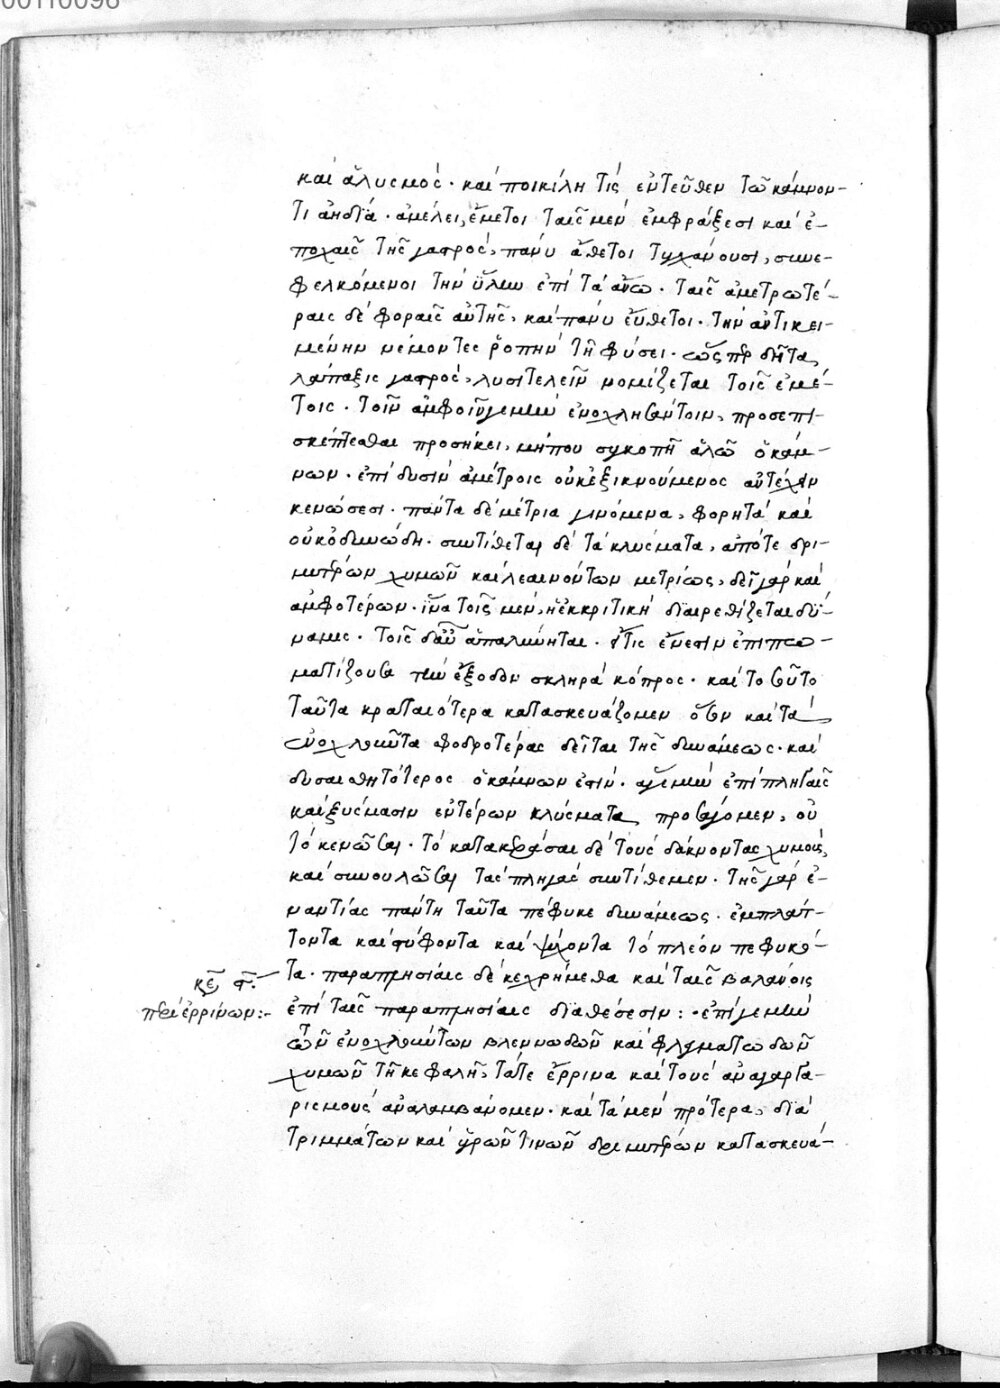 00110098
καὶ ἄλυσμός· καὶ ποικίλη τίς ἐντεῦθεν τῶ κάμνον-
τι ἀηδία· ἀμέλει, ἔμετοι ταῖς μὲν ἐμφράξεσι καὶ ἐ-
ποχαῖς τῆς γαστρὸς, πάνυ ἄθετοι τυγχάνουσι, συνε-
φελκόμενοι τὴν ὕλην ἐπὶ τὰ ἄνω· ταῖς ἀμετρωτέ-
ραις δὲ φοραῖς αὐτῆς, καὶ πάνυ εὔθετοι· τὴν ἀντικει-
μένην νέμοντες ῥοπὴν τῆ φύσει· ὥσπερ δῆτα,
λάπαξις γαστρὸς, λυσιτελεῖν νομίζεται τοῖς ἐμέ-
τοις· τοῖν ἀμφοῖν γεμὴν ἐνοχλησάντοιν, προσεπι-
σκέπτεσθαι προσήκει, μήπου συγκοπῆ ἁλῶ ὁ κάμ-
νων· ἐπὶ δυσὶν ἀμέτροις οὐκ ἐξικνούμενος ἀντέχειν
κενώσεσι· πάντα δὲ μέτρια γινόμενα, φορητὰ καὶ
οὐκ ὀδυνώδη· συντίθεται δὲ τὰ κλύσματα, ἀπό τε δρι-
μυτέρων χυμῶν καὶ λεαινόντων μετρίως, δεῖ γὰρ καὶ
ἀμφοτέρων· ἵνα τοῖς μὲν, ἡ ἐκκριτικὴ διαρεθίζεται δύ-
ναμις· τοῖς δ' αὖ ἀπαλύνηται· ἥτις ἔνεστιν ἐπιπω-
ματίζουσα τὴν ἔξοδον σκληρὰ κόπρος· καὶ τοσοῦτο
ταῦτα κραταιότερα κατασκευάζομεν ὅσον καὶ τὰ
ἐνοχλοῦντα σφοδροτέρας δεῖται τῆς δυνάμεως· καὶ
δυσαισθητότερος ὁ κάμνων ἐστίν· ἄγεμὴν ἐπὶ πληγαῖς
καὶ ξύσμασιν ἐντέρων κλύσματα προσάγομεν, οὐ
τὸ κενῶσαι· τὸ κατακεράσαι δὲ τοὺς δάκνοντας χυμοὺς,
καὶ συνουλῶσαι τὰς πληγὰς συντίθεμεν· τῆς γὰρ ἐ-
ναντίας πάντη ταῦτα πέφυκε δυνάμεως· ἐμπλάτ-
τοντα καὶ στύφοντα καὶ ψύχοντα τὸ πλέον πεφυκό-
τα· παραπλησίαις δὲ κεχρήμεθα καὶ ταῖς βαλάνοις
ἐπὶ ταῖς παραπλησίαις διαθέσεσιν:· ἐπὶ γεμὴν
τῶν ἐνοχλούντων βλεννωδῶν καὶ φλεγματωδῶν
χυμῶν τῆ κεφαλῆ, τά τε ἔρρινα καὶ τοὺς ἀναγαργα-
ρισμοὺς ἀναλαμβάνομεν· καὶ τὰ μὲν πρότερα, διὰ
τριμμάτων καὶ ὑγρῶν τινῶν δριμυτέρων κατασκευά-
κεφ. ϛ.
περὶ ἐρρίνων:-